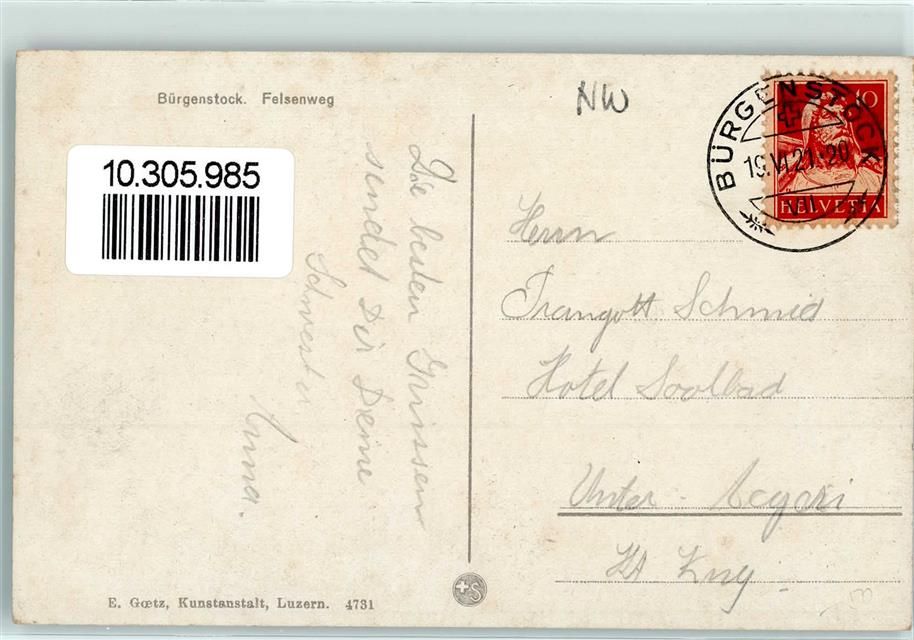 Bürgenstock. Felsenweg
10.305.985
Die besten Grüssen
sendet Dir Deine
Schwester
Anna.
E. Gœtz, Kunstanstalt, Luzern. 4731
NW
10
HELVETIA
BÜRGENSTOCK
19.VI.21.-20
Herrn
Traugott Schmid
Hotel Soolbad
Unter-Aegeri
Kt Zug